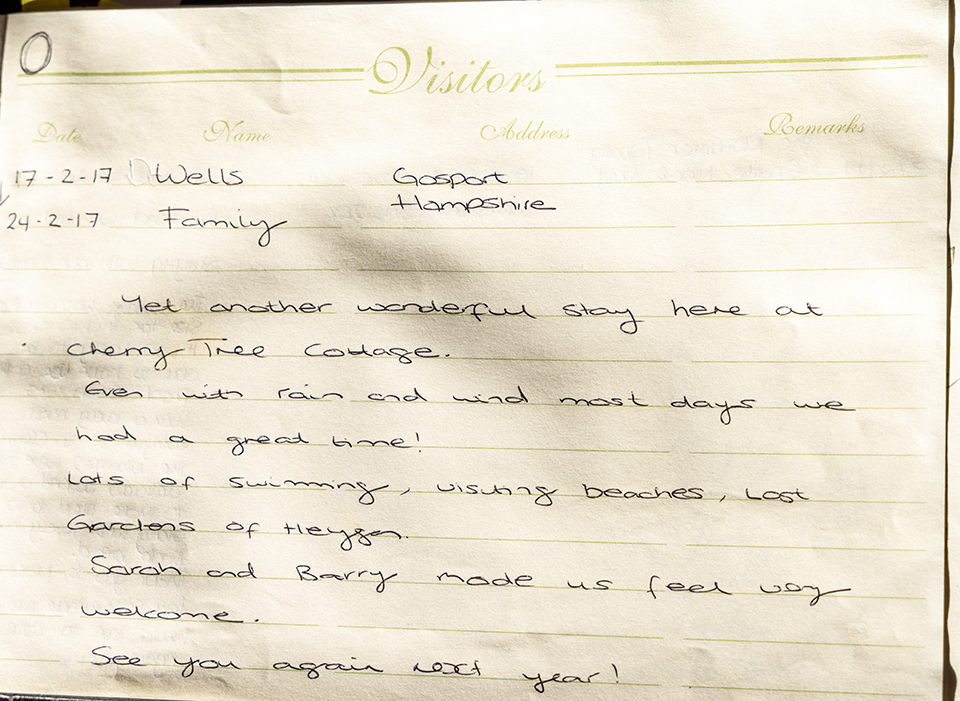 Visitors
Date Name Address Remarks
17-2-17 Wells Gosport
Hampshire
24-2-17 Family
Yet another wonderful stay here at
Cherry Tree Cottage.
Even with rain and wind most days we
had a great time!
Lots of swimming, visiting beaches, Lost
Gardens of Heygan.
Sarah and Barry made us feel very
welcome.
See you again next year!